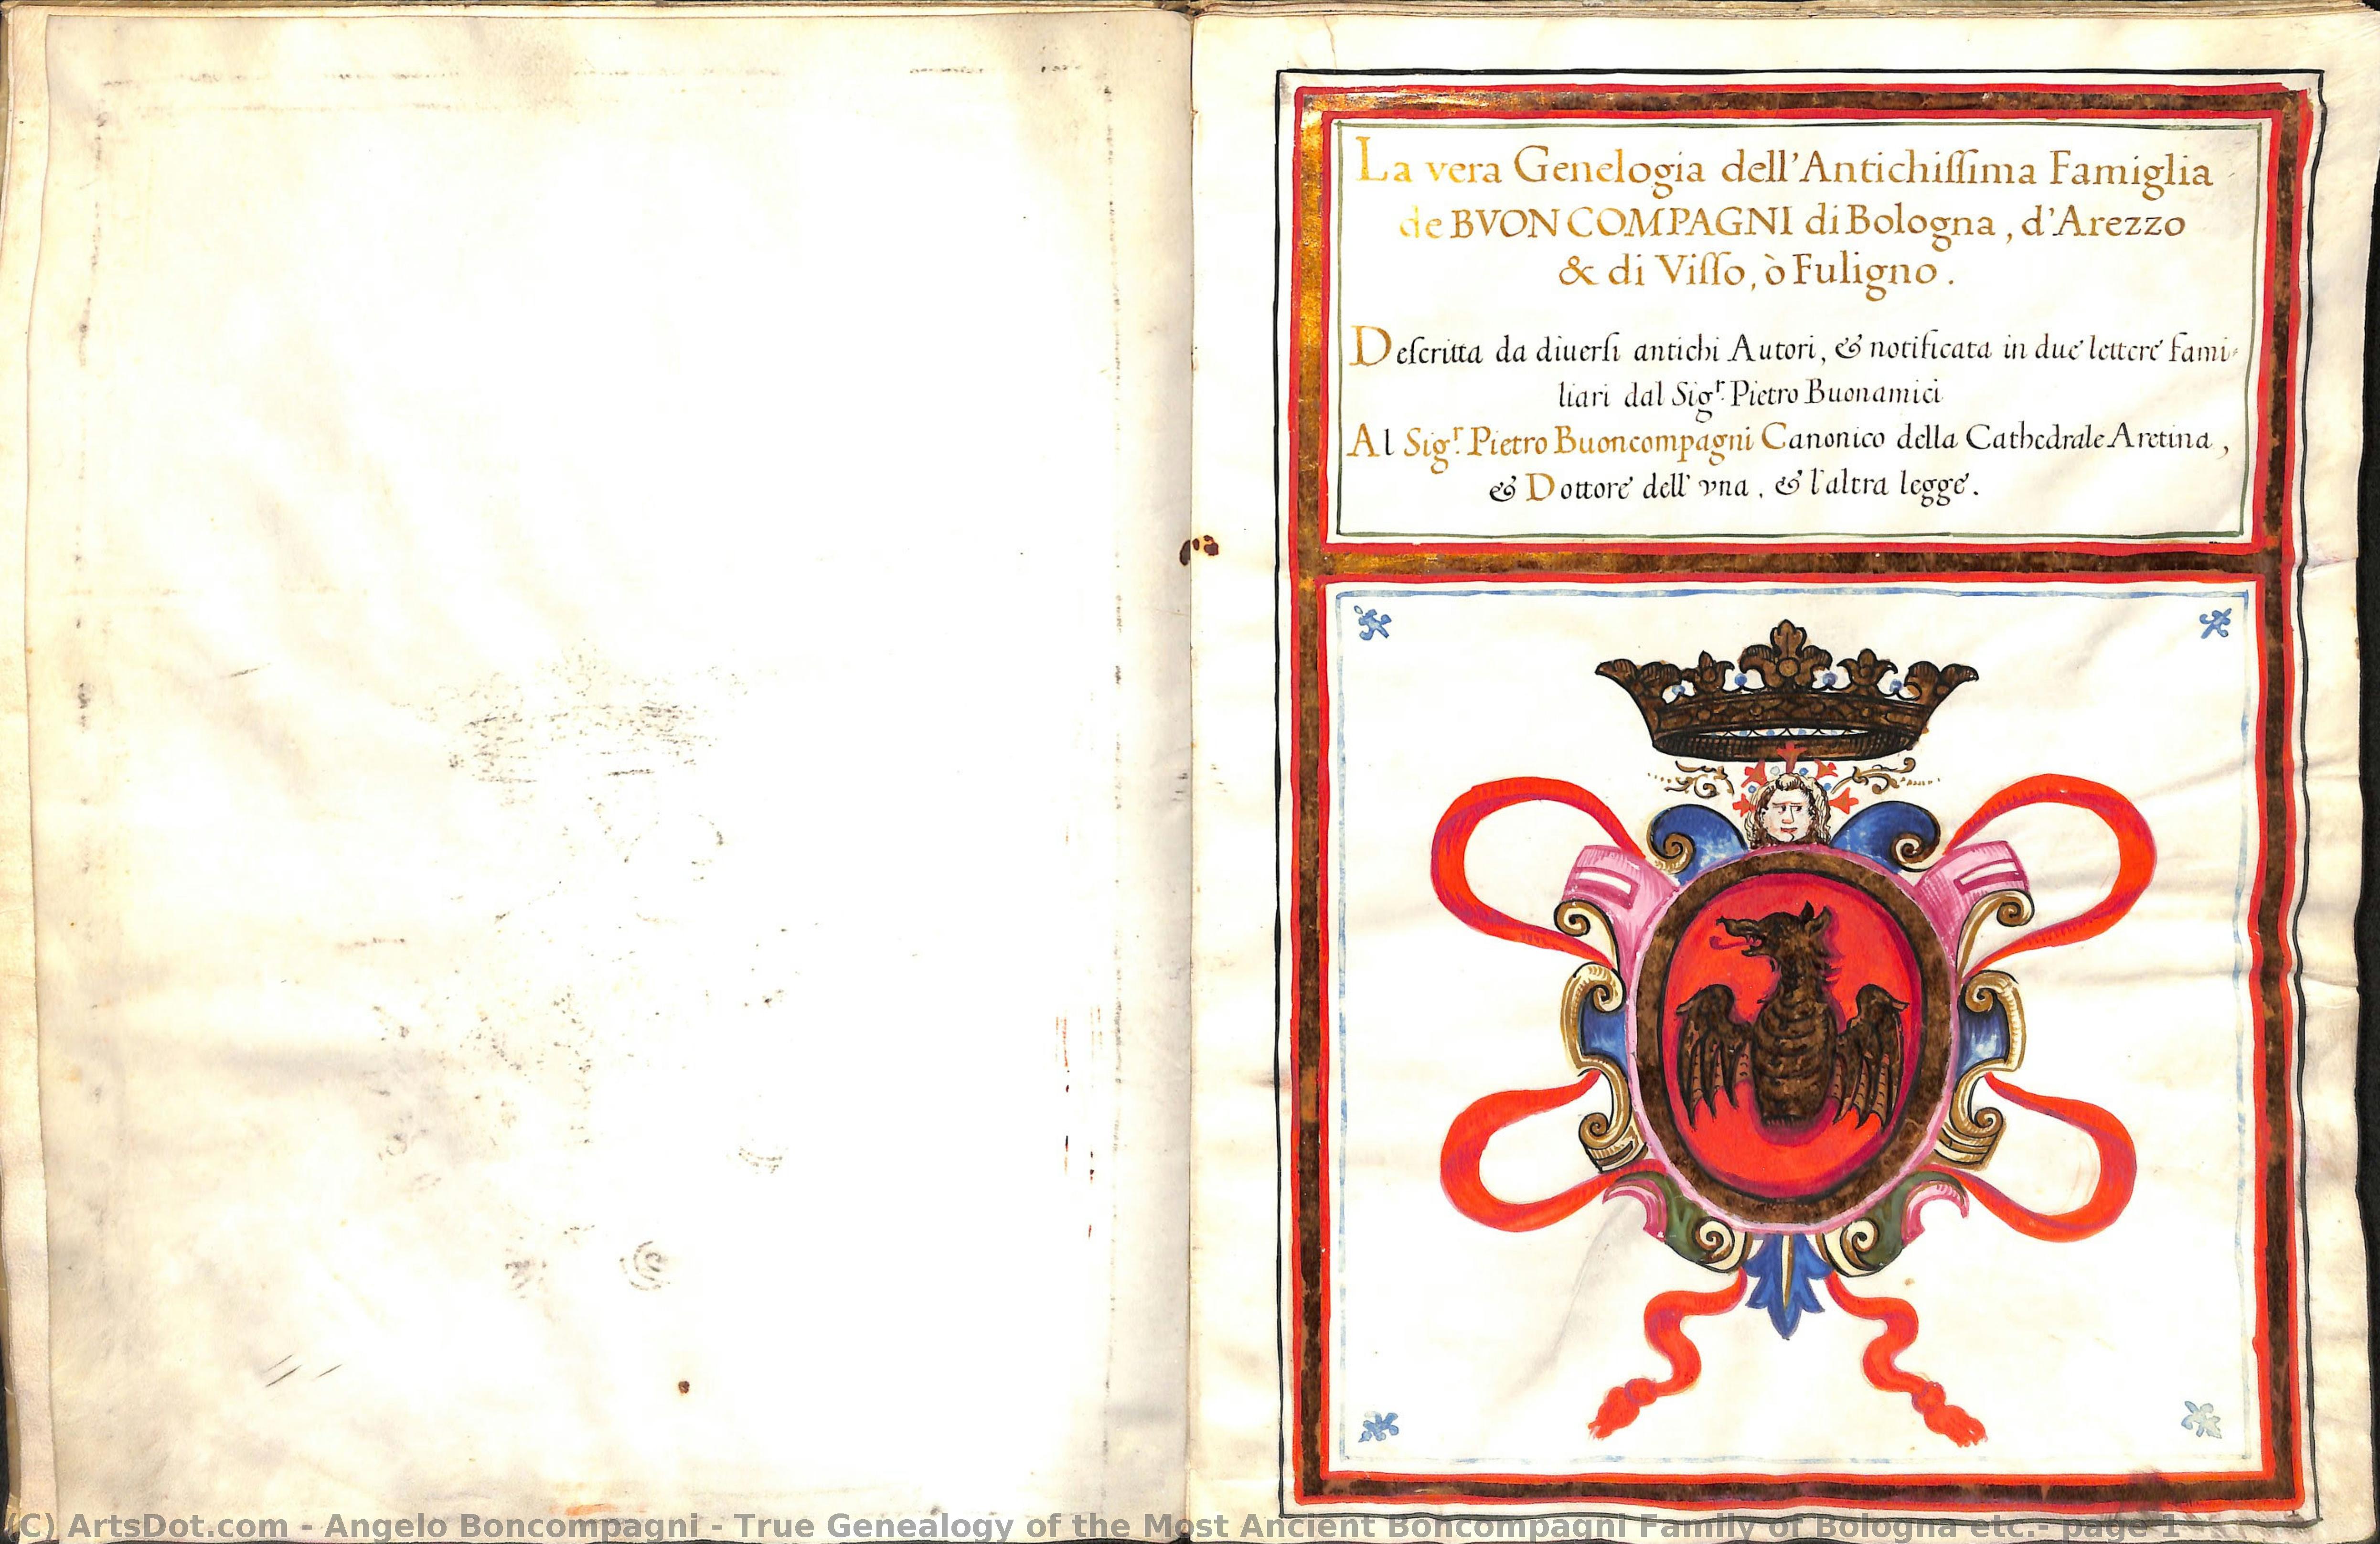 La vera Genelogia dell'Antichiſſima Famiglia
de BVONCOMPAGNI di Bologna, d'Arezzo
& di Viſſo, ò Fuligno.
Deſcritta da diuerſi antichi Autori, & notificata in due lettere fami-
liari dal Sigr. Pietro Buonamici
Al Sigr. Pietro Buoncompagni Canonico della Cathedrale Aretina,
& Dottore dell' vna, & l'altra legge.
(C) ArtsDot.com - Angelo Boncompagni - True Genealogy of the Most Ancient Boncompagni Family of Bologna etc.- page 1